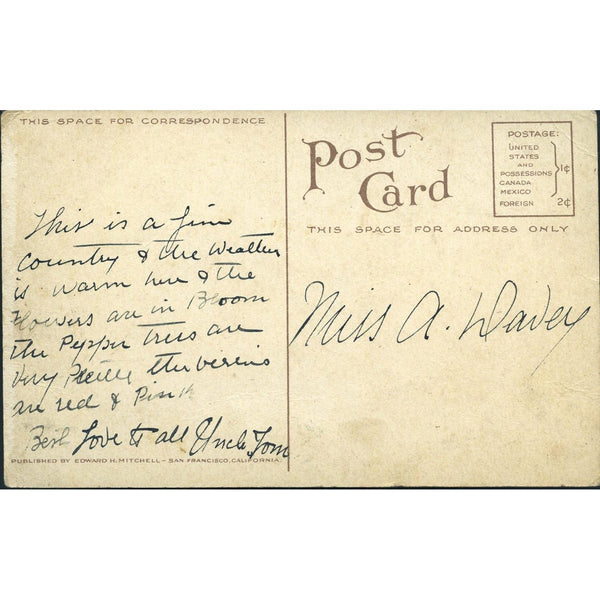 THIS SPACE FOR CORRESPONDENCE
This is a fine
country & the Weather
is warm here & the
Flowers are in Bloom
the Pepper trees are
Very
are red & Pink
Best Love to all Uncle Tom
PUBLISHED BY EDWARD H. MITCHELL – SAN FRANCISCO, CALIFORNIA.
Post
Card
THIS SPACE FOR ADDRESS ONLY
POSTAGE:
UNITED
STATES
AND
POSSESSIONS 1¢
CANADA
MEXICO
FOREIGN 2¢
Miss A. Davey